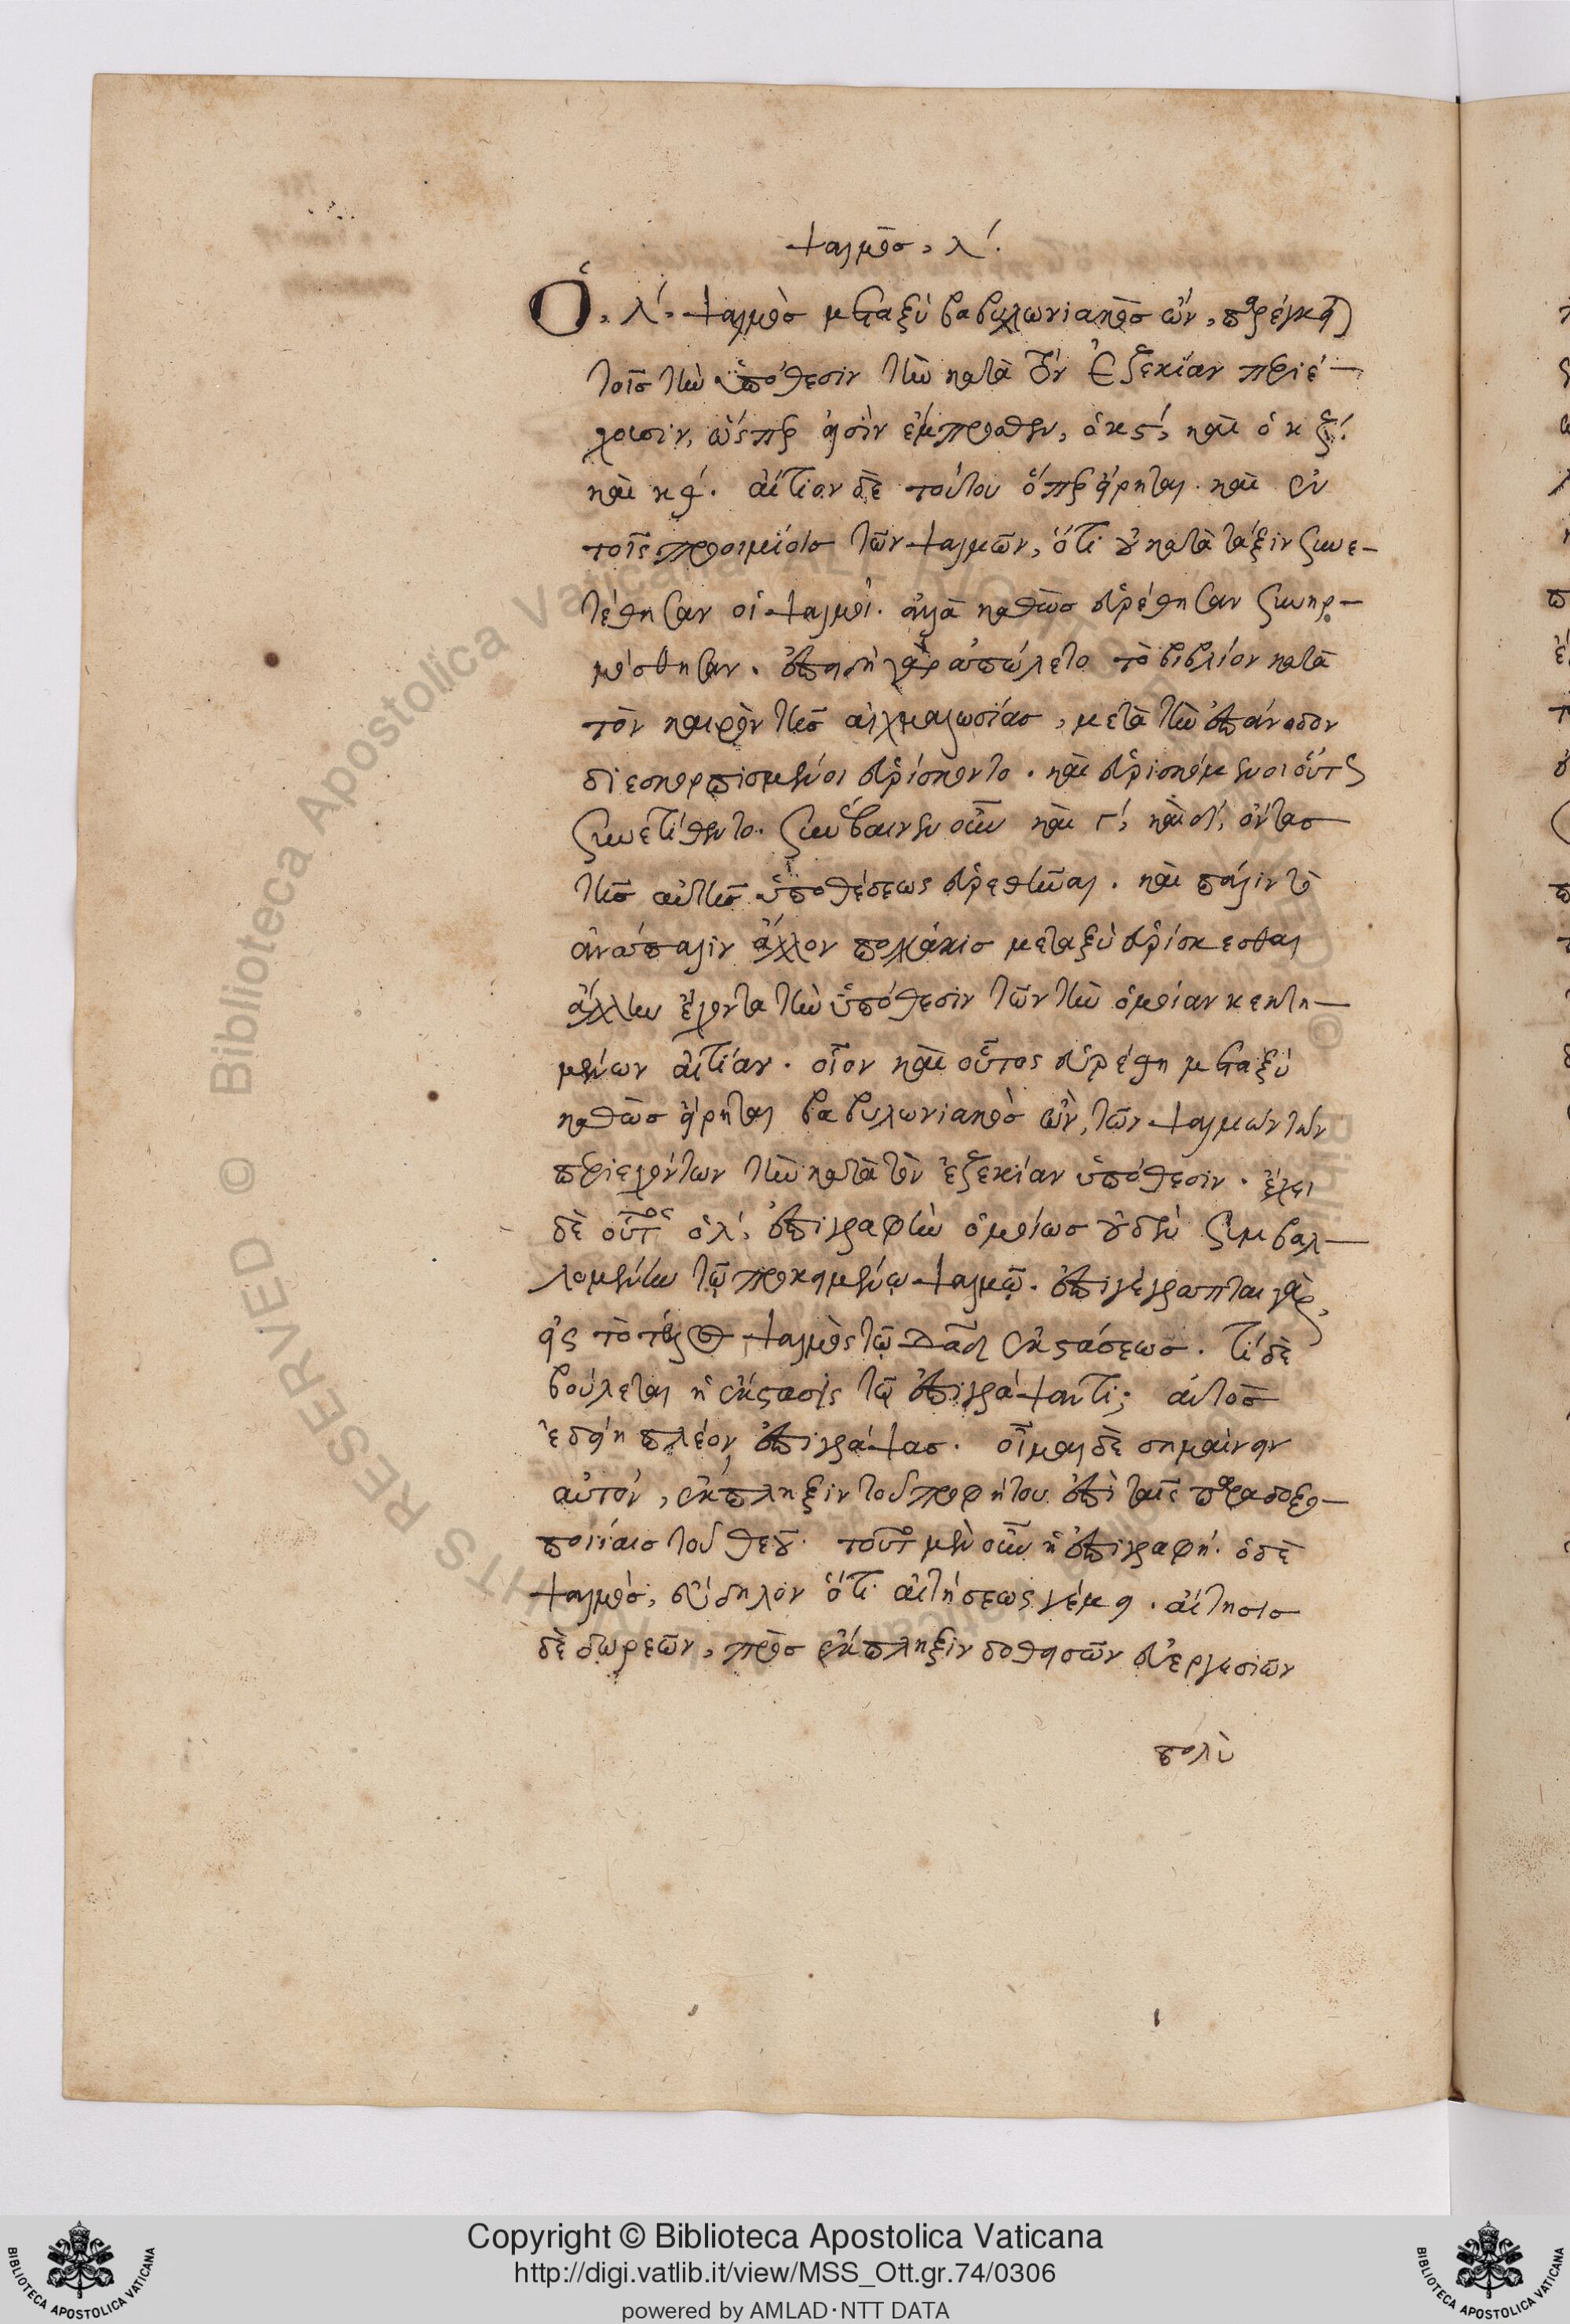 ψαλμὸς, λ΄.
Ὁ, λ΄, ψαλμὸς μεταξὺ βαβυλωνιακὸς ὢν, παρέγκειται
τοῖς τὴν ὑπόθεσιν τὴν κατὰ τὸν Ἐζεκίαν περιέ-
χουσιν, ὥσπερ εἰσὶν ἔμπροσθεν, ὁ κς΄, καὶ ὁ κζ΄.
καὶ κθ΄. αἴτιον δὲ τούτου ὅπερ εἴρηται καὶ ἐν
τοῖς προοιμίοις τῶν ψαλμῶν, ὅτι οὐ κατὰ τάξιν συνε-
τέθησαν οἱ ψαλμοί. ἀλλὰ καθὼς εὑρέθησαν συνηρ-
μόσθησαν. ἐπειδὴ γὰρ ἀπώλετο τὸ βιβλίον κατὰ
τὸν καιρὸν τῆς αἰχμαλωσίας, μετὰ τὴν ἐπάνοδον
διεσκορπισμένοι εὑρίσκοντο. καὶ εὑρισκόμενοι οὕτως
συνετίθεντο. συνέβαινεν οὖν καὶ γ΄, καὶ δ΄, ὄντας
τῆς αὐτῆς ὑποθέσεως εὑρεθῆναι. καὶ πάλιν τὸ
ἀνάπαλιν ἄλλον πολλάκις μεταξὺ εὑρίσκεσθαι
ἄλλην ἔχοντα τὴν ὑπόθεσιν τῶν τὴν ὁμοίαν κεκτη-
μένων αἰτίαν. οἷον καὶ οὗτος εὑρέθη μεταξὺ
καθὼς εἴρηται βαβυλωνιακὸς ὢν, τῶν ψαλμῶν τῶν
περιεχόντων τὴν κατὰ τὸν ἐζεκίαν ὑπόθεσιν. ἔχει
δὲ οὗτος ὁ λ΄, ἐπιγραφὴν ὁμοίως οὐδὲν συμβαλ-
λομένην τῷ προκειμένῳ ψαλμῷ. ἐπιγέγραπται γὰρ,
εἰς τὸ τέλος ψαλμὸς τῷ Δαδ ἐκστάσεως. τί δὲ
βούλεται ἡ ἔκστασις τῷ ἐπιγράψαντι; αὐτὸς
ἐδείη πλέον ἐπιγράψας. οἶμαι δὲ σημαίνειν
αὐτὸν, ἔκπληξιν τοῦ προφήτου ἐπὶ ταῖς παραδοξο-
ποιίαις τοῦ θεοῦ. τοῦτο μὲν οὖν ἡ ἐπιγραφή. ὁ δὲ
ψαλμὸς, εὔδηλον ὅτι αἰτήσεως γέμει. αἴτησις
δὲ δωρεῶν, πρὸς ἔκπληξιν δοθεισῶν εὐεργεσιῶν
πολὺ
Copyright © Biblioteca Apostolica Vaticana
http://digi.vatlib.it/view/MSS_Ott.gr.74/0306
powered by AMLAD·NTT DATA